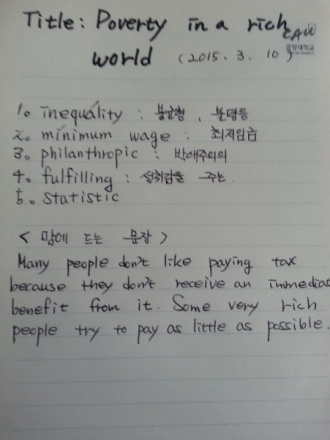 Title: Poverty in a rich
CAU
중앙대학교
world (2015. 3. 10)
1. inequality : 불균형, 불평등
2. minimum wage : 최저임금
3. philanthropic : 박애주의의
4. fulfilling : 성취감을 주는
5. statistic
< 맘에 드는 문장 >
Many people don't like paying tax
because they don't receive an immedia
benefit from it. Some very rich
people try to pay as little as possible.